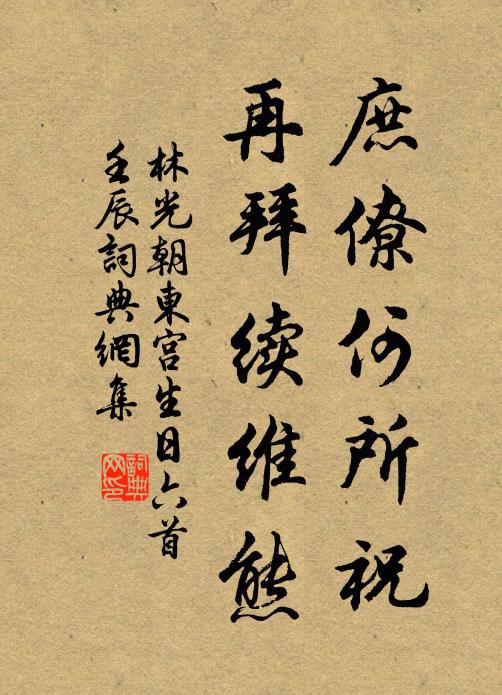 庶僚何所祝
再拜续维熊
林光朝東宫生日六首
壬辰詞典網集
詞典网印